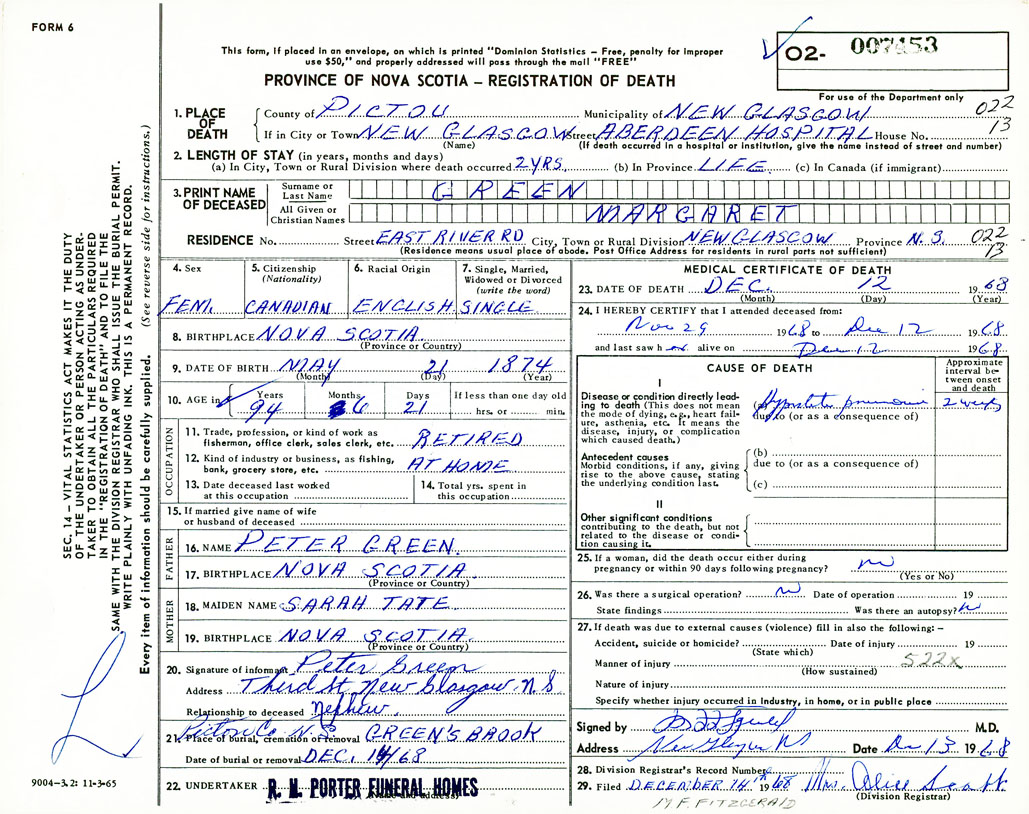 FORM 6
This form, if placed in an envelope, on which is printed "Dominion Statistics – Free, penalty for improper
use $50," and properly addressed will pass through the mail "FREE"
PROVINCE OF NOVA SCOTIA – REGISTRATION OF DEATH
O2- 007453
For use of the Department only
022
13
1. PLACE OF DEATH
County of PICTOU Municipality of NEW GLASGOW
If in City or Town NEW GLASGOW Street ABERDEEN HOSPITAL House No.
(Name) (If death occurred in a hospital or institution, give the name instead of street and number)
2. LENGTH OF STAY (in years, months and days)
(a) In City, Town or Rural Division where death occurred 2 YRS. (b) In Province LIFE (c) In Canada (if immigrant)
3. PRINT NAME OF DECEASED
Surname or Last Name GREEN
All Given or Christian Names MARGARET
RESIDENCE No. Street EAST RIVER RD City, Town or Rural Division NEW GLASGOW Province N.S. 022
13
(Residence means usual place of abode. Post Office Address for residents in rural parts not sufficient)
4. Sex
FEM.
5. Citizenship
(Nationality)
CANADIAN
6. Racial Origin
ENGLISH
7. Single, Married,
Widowed or Divorced
(write the word)
SINGLE
8. BIRTHPLACE NOVA SCOTIA
(Province or Country)
9. DATE OF BIRTH MAY 21 1874
(Month) (Day) (Year)
10. AGE in Years Months Days If less than one day old
94 6 21 hrs. or min.
OCCUPATION
11. Trade, profession, or kind of work as
fisherman, office clerk, sales clerk, etc. RETIRED
12. Kind of industry or business, as fishing,
bank, grocery store, etc. AT HOME
13. Date deceased last worked
at this occupation
14. Total yrs. spent in
this occupation
15. If married give name of wife
or husband of deceased
FATHER
16. NAME PETER GREEN.
17. BIRTHPLACE NOVA SCOTIA
(Province or Country)
MOTHER
18. MAIDEN NAME SARAH TATE
19. BIRTHPLACE NOVA SCOTIA
(Province or Country)
20. Signature of informant Peter Green
Address Third St. New Glasgow N.S
Relationship to deceased Nephew.
Pictou Co. N.S
21. Place of burial, cremation or removal GREEN'S BROOK
Date of burial or removal DEC. 14/68
22. UNDERTAKER R. H. PORTER FUNERAL HOMES
(Name and address)
MEDICAL CERTIFICATE OF DEATH
23. DATE OF DEATH DEC. 12 1968
(Month) (Day) (Year)
24. I HEREBY CERTIFY that I attended deceased from:
Nov 29 1968 to Dec 12 1968
and last saw her alive on Dec 12 1968
CAUSE OF DEATH
Approximate
interval be-
tween onset
and death
I
Disease or condition directly lead-
ing to death (This does not
mean the mode of dying, e.g., heart fail-
ure, asthenia, etc. It means the
disease, injury, or complication
which caused death.)
(a) Hypostatic pneumonia 2 weeks
due to (or as a consequence of)
Antecedent causes
Morbid conditions, if any, giving
rise to the above cause, stating
the underlying condition last.
(b)
due to (or as a consequence of)
(c)
II
Other significant conditions
contributing to the death, but not
related to the disease or condi-
tion causing it.
25. If a woman, did the death occur either during
pregnancy or within 90 days following pregnancy? no
(Yes or No)
26. Was there a surgical operation? no Date of operation 19
State findings Was there an autopsy? no
27. If death was due to external causes (violence) fill in also the following: –
Accident, suicide or homicide? Date of injury 19
(State which)
522x
Manner of injury
(How sustained)
Nature of injury
Specify whether injury occurred in Industry, in home, or in public place
Signed by M.D.
Address New Glasgow NS Date Dec 13 1968
28. Division Registrar's Record Number
29. Filed DECEMBER 14th 1968 Mrs. Alice Scott
(Division Registrar)
M.F. FITZGERALD
SEC. 14 – VITAL STATISTICS ACT MAKES IT THE DUTY
OF THE UNDERTAKER OR PERSON ACTING AS UNDER-
TAKER TO OBTAIN ALL THE PARTICULARS REQUIRED
IN THE "REGISTRATION OF DEATH" AND TO FILE THE
SAME WITH THE DIVISION REGISTRAR WHO SHALL ISSUE THE BURIAL PERMIT.
WRITE PLAINLY WITH UNFADING INK. THIS IS A PERMANENT RECORD.
Every item of information should be carefully supplied. (See reverse side for instructions.)
9004–3.2: 11-3-65